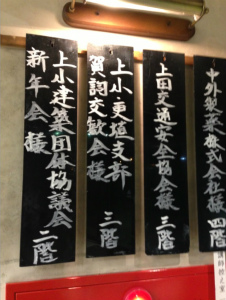 中外製薬株式会社様 四階
上田交通安全協会様 三階
上小更埴支部
賀詞交歓会様 三階
上小建築団体協議会
新年会様 二階
講師控え室